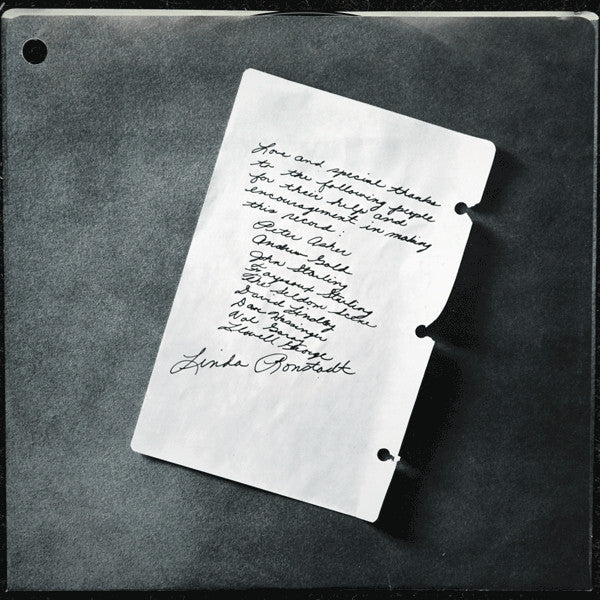 Love and special thanks
to the following people
for their help and
encouragement in making
this record:
Peter Asher
Andrew Gold
John Starling
Fayssoux Starling
The Seldom Scene
David Lindley
Dan Wessinger
Val Garay
Llowell George
Linda Ronstadt